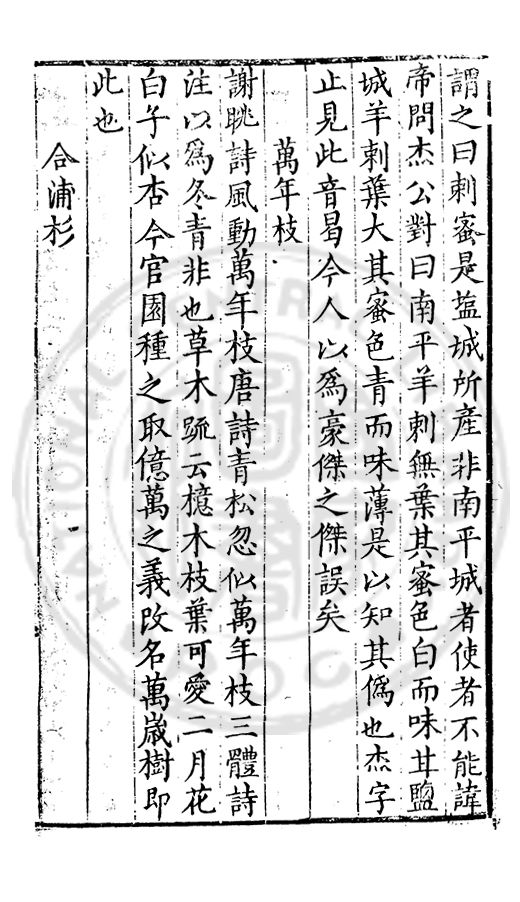 謂之曰刺蜜是塩城所産非南平城者使者不能諱
帝問杰公對曰南平羊刺無葉其蜜色白而味甘鹽
城羊刺葉大其蜜色青而味薄是以知其僞也杰字
止見此音曷今人以爲豪傑之傑誤矣
萬年枝
謝眺詩風動萬年枝唐詩青松忽似萬年枝三體詩
注以爲冬青非也草木疏云檍木枝葉可愛二月花
白子似杏今官園種之取億萬之義改名萬歲樹即
此也
合浦杉